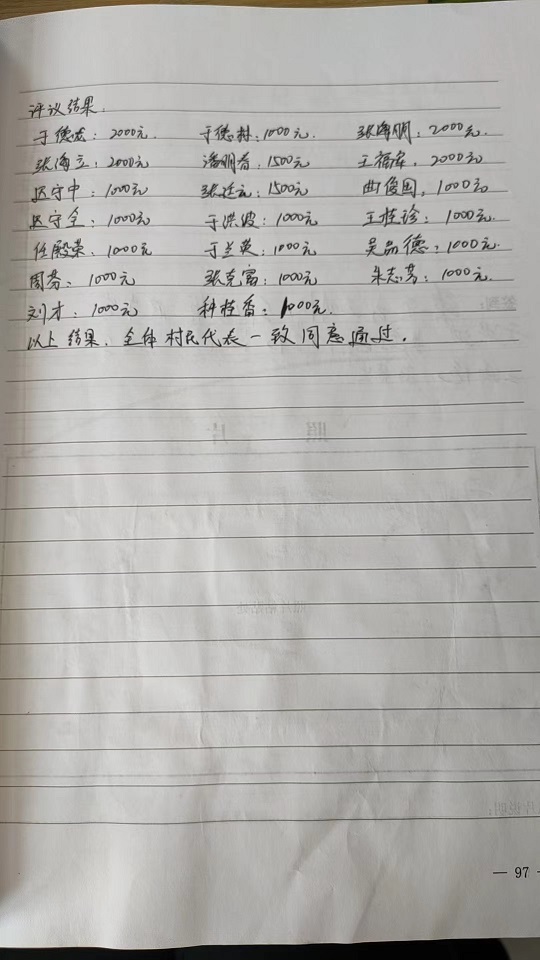 评议结果：
于德龙：2000元 于德林：1000元. 张海明：2000元.
张海立：2000元 潘明春：1500元 王福库：2000元
迟守中：1000元 张廷云：1500元 曲俊国：1000元
迟守全：1000元 于洪波：1000元 王桂珍：1000元.
任殿荣：1000元 于兰英：1000元 吴品德：1000元.
周芬：1000元 张克富：1000元 朱志芳：1000元.
刘才：1000元 桂香：1000元.
以上结果，全体村民代表一致同意通过.
照 片
— 97